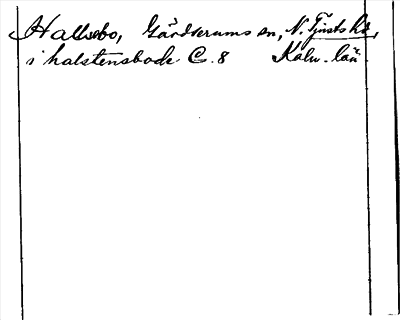 Hallsebo, Gärdserums sn, N. Tjusts hd,
i halstensbode C. 8 Kalm. län